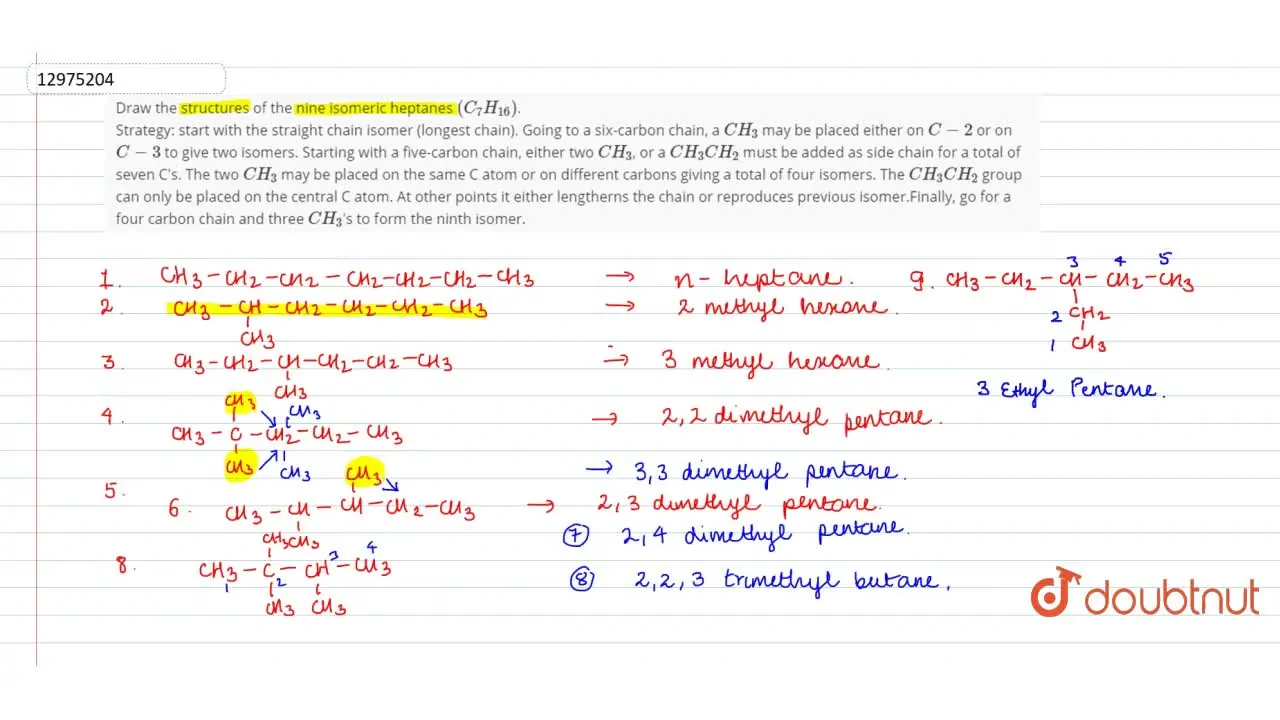 12975204
Draw the structures of the nine isomeric heptanes (C₇H₁₆).
Strategy: start with the straight chain isomer (longest chain). Going to a six-carbon chain, a CH₃ may be placed either on C − 2 or on
C − 3 to give two isomers. Starting with a five-carbon chain, either two CH₃, or a CH₃CH₂ must be added as side chain for a total of
seven C's. The two CH₃ may be placed on the same C atom or on different carbons giving a total of four isomers. The CH₃CH₂ group
can only be placed on the central C atom. At other points it either lengtherns the chain or reproduces previous isomer.Finally, go for a
four carbon chain and three CH₃'s to form the ninth isomer.
1. CH3-CH2-CH2-CH2-CH2-CH2-CH3 → n-heptane.
2. CH3-CH-CH2-CH2-CH2-CH3 → 2 methyl hexane.
CH3
3. CH3-CH2-CH-CH2-CH2-CH3 → 3 methyl hexane.
CH3
CH3 CH3
4. CH3-C-CH2-CH2-CH3 → 2,2 dimethyl pentane.
CH3 CH3
5. → 3,3 dimethyl pentane.
CH3
6. CH3-CH-CH-CH2-CH3 → 2,3 dimethyl pentane.
CH3
7 2,4 dimethyl pentane.
CH3 3 4
8. CH3-C-CH-CH3
1 2
CH3 CH3
8 2,2,3 trimethyl butane.
3 4 5
9. CH3-CH2-CH-CH2-CH3
2 CH2
1 CH3
3 Ethyl Pentane.
doubtnut